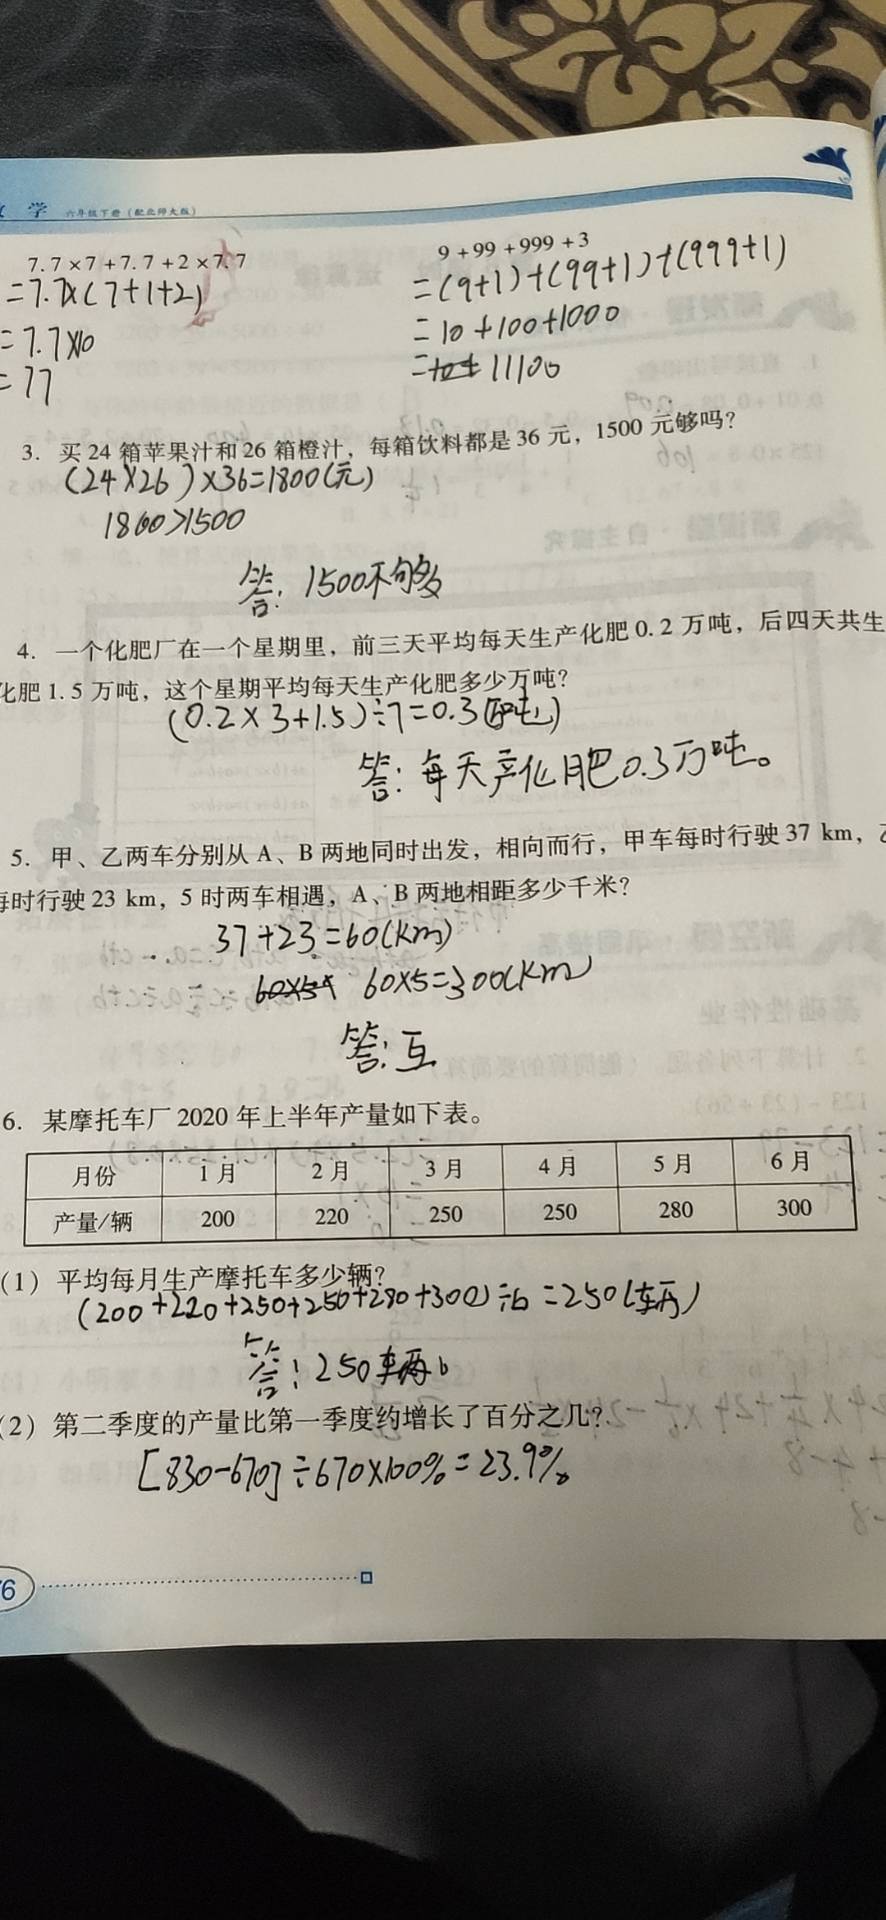 学 六年级下册（配北师大版）
7.7×7+7.7+2×7.7
=7.7×(7+1+2)
=7.7×10
=77
9+99+999+3
=(9+1)+(99+1)+(999+1)
=10+100+1000
=11100
3. 买 24 箱苹果汁和 26 箱橙汁，每箱饮料都是 36 元，1500 元够吗？
(24×26)×36=1800(元)
1800>1500
答：1500不够
4. 一个化肥厂在一个星期里，前三天平均每天生产化肥 0.2 万吨，后四天共生
化肥 1.5 万吨，这个星期平均每天生产化肥多少万吨？
(0.2×3+1.5)÷7=0.3(万吨)
答：每天产化肥0.3万吨。
5. 甲、乙两车分别从 A、B 两地同时出发，相向而行，甲车每时行驶 37 km，乙
每时行驶 23 km，5 时两车相遇，A、B 两地相距多少千米？
37+23=60(km)
60×5 60×5=300(km)
答：互
6. 某摩托车厂 2020 年上半年产量如下表。
月份 1月 2月 3月 4月 5月 6月
产量/辆 200 220 250 250 280 300
（1）平均每月生产摩托车多少辆？
(200+220+250+250+280+300)÷6=250(辆)
答：250辆。
（2）第二季度的产量比第一季度约增长了百分之几？
[830-670]÷670×100%=23.9%
76